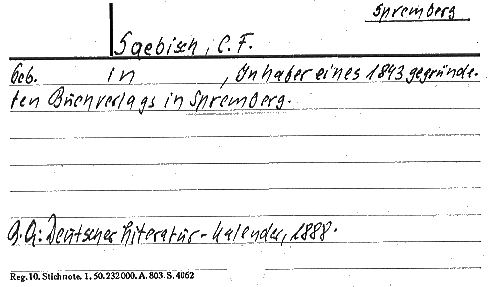 Spremberg
Saebisch, C.F.
Geb. in , Inhaber eines 1843 gegründe-
ten Buchverlags in Spremberg.
Q.Q: Deutscher Literatur-Kalender, 1888.
Reg. 10. Stichnote. 1. 50. 232000. A. 803. S. 4062